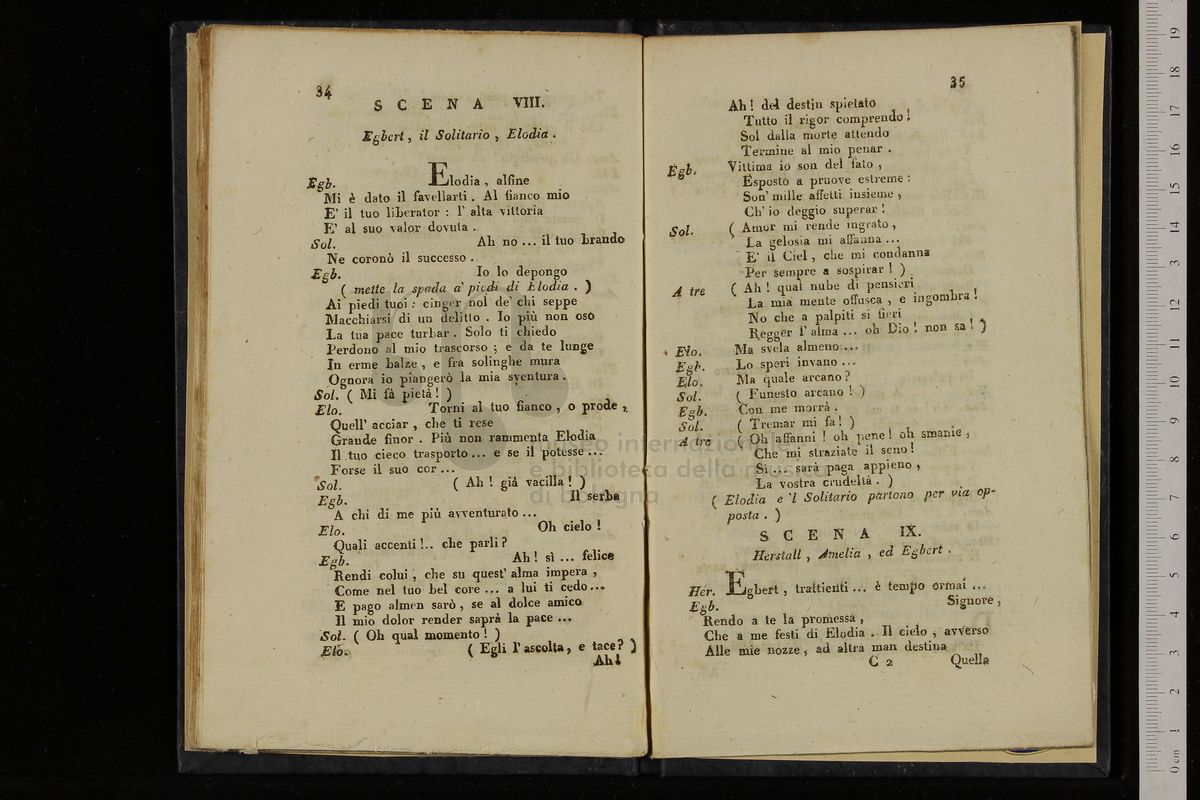 34
S C E N A VIII.
Egbert, il Solitario, Elodia.
Egb. Elodia, alfine
Mi è dato il favellarti. Al fianco mio
E' il tuo liberator : l' alta vittoria
E' al suo valor dovuta.
Sol. Ah no ... il tuo brando
Ne coronò il successo.
Egb. Io lo depongo
( mette la spada a' piedi di Elodia. )
Ai piedi tuoi : cinger nol de' chi seppe
Macchiarsi di un delitto. Io più non oso
La tua pace turbar. Solo ti chiedo
Perdono al mio trascorso ; e da te lunge
In erme balze, e fra solinghe mura
Ognora io piangerò la mia sventura.
Sol. ( Mi fà pietà! )
Elo. Torni al tuo fianco, o prode,
Quell' acciar, che ti rese
Grande finor. Più non rammenta Elodia
Il tuo cieco trasporto ... e se il potesse ...
Forse il suo cor ...
Sol. ( Ah ! già vacilla ! )
Egb. Il serba
A chi di me più avventurato ...
Elo. Oh cielo !
Quali accenti !.. che parli ?
Egb. Ah ! sì ... felice
Rendi colui, che su quest' alma impera,
Come nel tuo bel core ... a lui ti cedo ...
E pago almen sarò, se al dolce amico
Il mio dolor render saprà la pace ...
Sol. ( Oh qual momento ! )
Elo. ( Egli l' ascolta, e tace? )
Ah!
35
Ah ! del destin spietato
Tutto il rigor comprendo !
Sol dalla morte attendo
Termine al mio penar.
Egb. Vittima io son del fato,
Esposto a pruove estreme :
Son' mille affetti insieme,
Ch' io deggio superar !
Sol. ( Amor mi rende ingrato,
La gelosia mi affanna ...
E' il Ciel, che mi condanna
Per sempre a sospirar ! )
A tre ( Ah ! qual nube di pensieri
La mia mente offusca, e ingombra !
No che a palpiti sì fieri
Regger l' alma ... oh Dio ! non sa ! )
Elo. Ma svela almeno ...
Egb. Lo speri invano ...
Elo. Ma quale arcano ?
Sol. ( Funesto arcano ! )
Egb. Con me morrà.
Sol. ( Tremar mi fa ! )
A tre ( Oh affanni ! oh pene ! oh smanie,
Che mi straziate il seno !
Sì ... sarà paga appieno,
La vostra crudeltà. )
( Elodia e 'l Solitario partono per via op-
posta. )
S C E N A IX.
Herstall, Amelia, ed Egbert.
Her. Egbert, trattienti ... è tempo ormai ...
Egb. Signore,
Rendo a te la promessa,
Che a me festi di Elodia. Il cielo, avverso
Alle mie nozze, ad altra man destina
C 2 Quella
museo internazionale
e biblioteca della musica
di bologna
19
18
17
16
15
14
13
12
11
10
9
8
7
6
5
4
3
2
1
0 cm